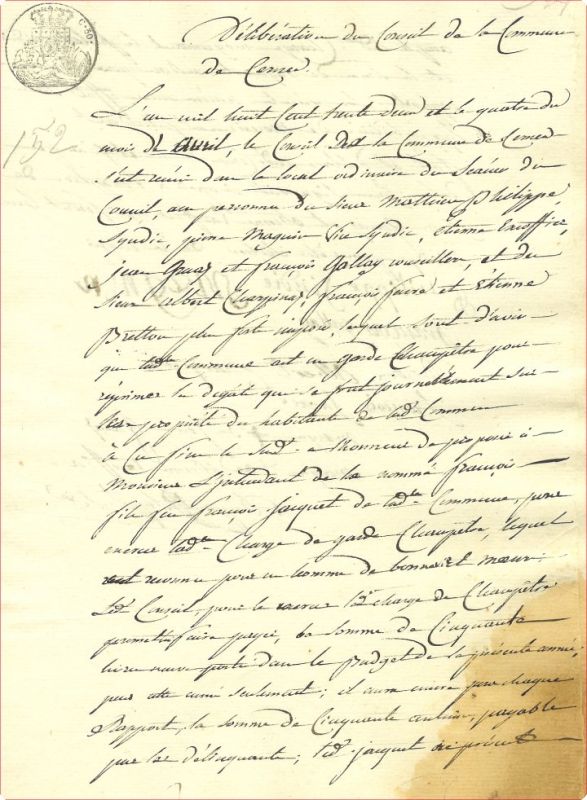 Délibération du Conseil de la Commune
de
L'an mil huit Cent trente deux et le quatre du
mois d'avril, le Conseil de la Commune de
s'est réuni dans le local ordinaire des Séances du
Conseil, aux personnes des Sieurs Mathieu Philippe
Syndic, pierre Vice Syndic, étienne
jean et françois Gallay conseillers, et des
Sieurs albert françois favre et Étienne
plus fort imposés, lequel sont d'avis
que lad.te Commune ait un garde Champêtre pour
réprimer les dégats qui se font journellement sur
les propriétés des habitants de lad.te Commune
à Ces fins le Sind. a l'honneur de proposer à
Monsieur L'intendant de la nommé françois
fils feu françois jacquet de lad.te Commune, pour
exercer lad.te Charge de garde Champêtre, lequel
est reconnu pour un homme de bonnes et mœurs.
Led. Conseil, pour le exercer lad. charge de Champêtre
promet faire payer, la Somme de Cinquante
livres neuve portée dans le Budget de la présente année,
pour cette année seulement; il aura encore pour chaque
Rapport, la Somme de Cinquante centimes, payable
par les délinquants; led. jacquet